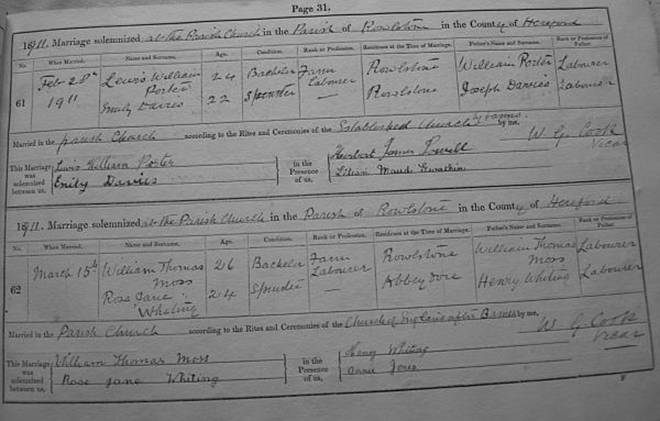 Page 31.
1911. Marriage solemnized at the Parish Church in the Parish of Rowlstone in the County of Hereford
No. When Married. Name and Surname. Age. Condition. Rank or Profession. Residence at the Time of Marriage. Father's Name and Surname. Rank or Profession of Father.
61 Feb 20th 1911 Lewis William Porter 24 Bachelor Farm Labourer Rowlstone William Porter Labourer
Emily Davies 22 Spinster — Rowlstone Joseph Davies Labourer
Married in the Parish Church according to the Rites and Ceremonies of the Established Church by Banns by me,
W. G. Cooke
Vicar
This Marriage was solemnized between us,
Lewis William Porter
Emily Davies
in the Presence of us,
Herbert James Powell
Lilian Maude
1911. Marriage solemnized at the Parish Church in the Parish of Rowlstone in the County of Hereford
No. When Married. Name and Surname. Age. Condition. Rank or Profession. Residence at the Time of Marriage. Father's Name and Surname. Rank or Profession of Father.
62 March 15th William Thomas Moss 26 Bachelor Farm Labourer Rowlstone William Thomas Moss Labourer
Rose Jane Whiting 24 Spinster — Abbey Dore Henry Whiting Labourer
Married in the Parish Church according to the Rites and Ceremonies of the Church of England after Banns by me,
W. G. Cooke
Vicar
This Marriage was solemnized between us,
William Thomas Moss
Rose Jane Whiting
in the Presence of us,
Henry Whiting
Annie Jones